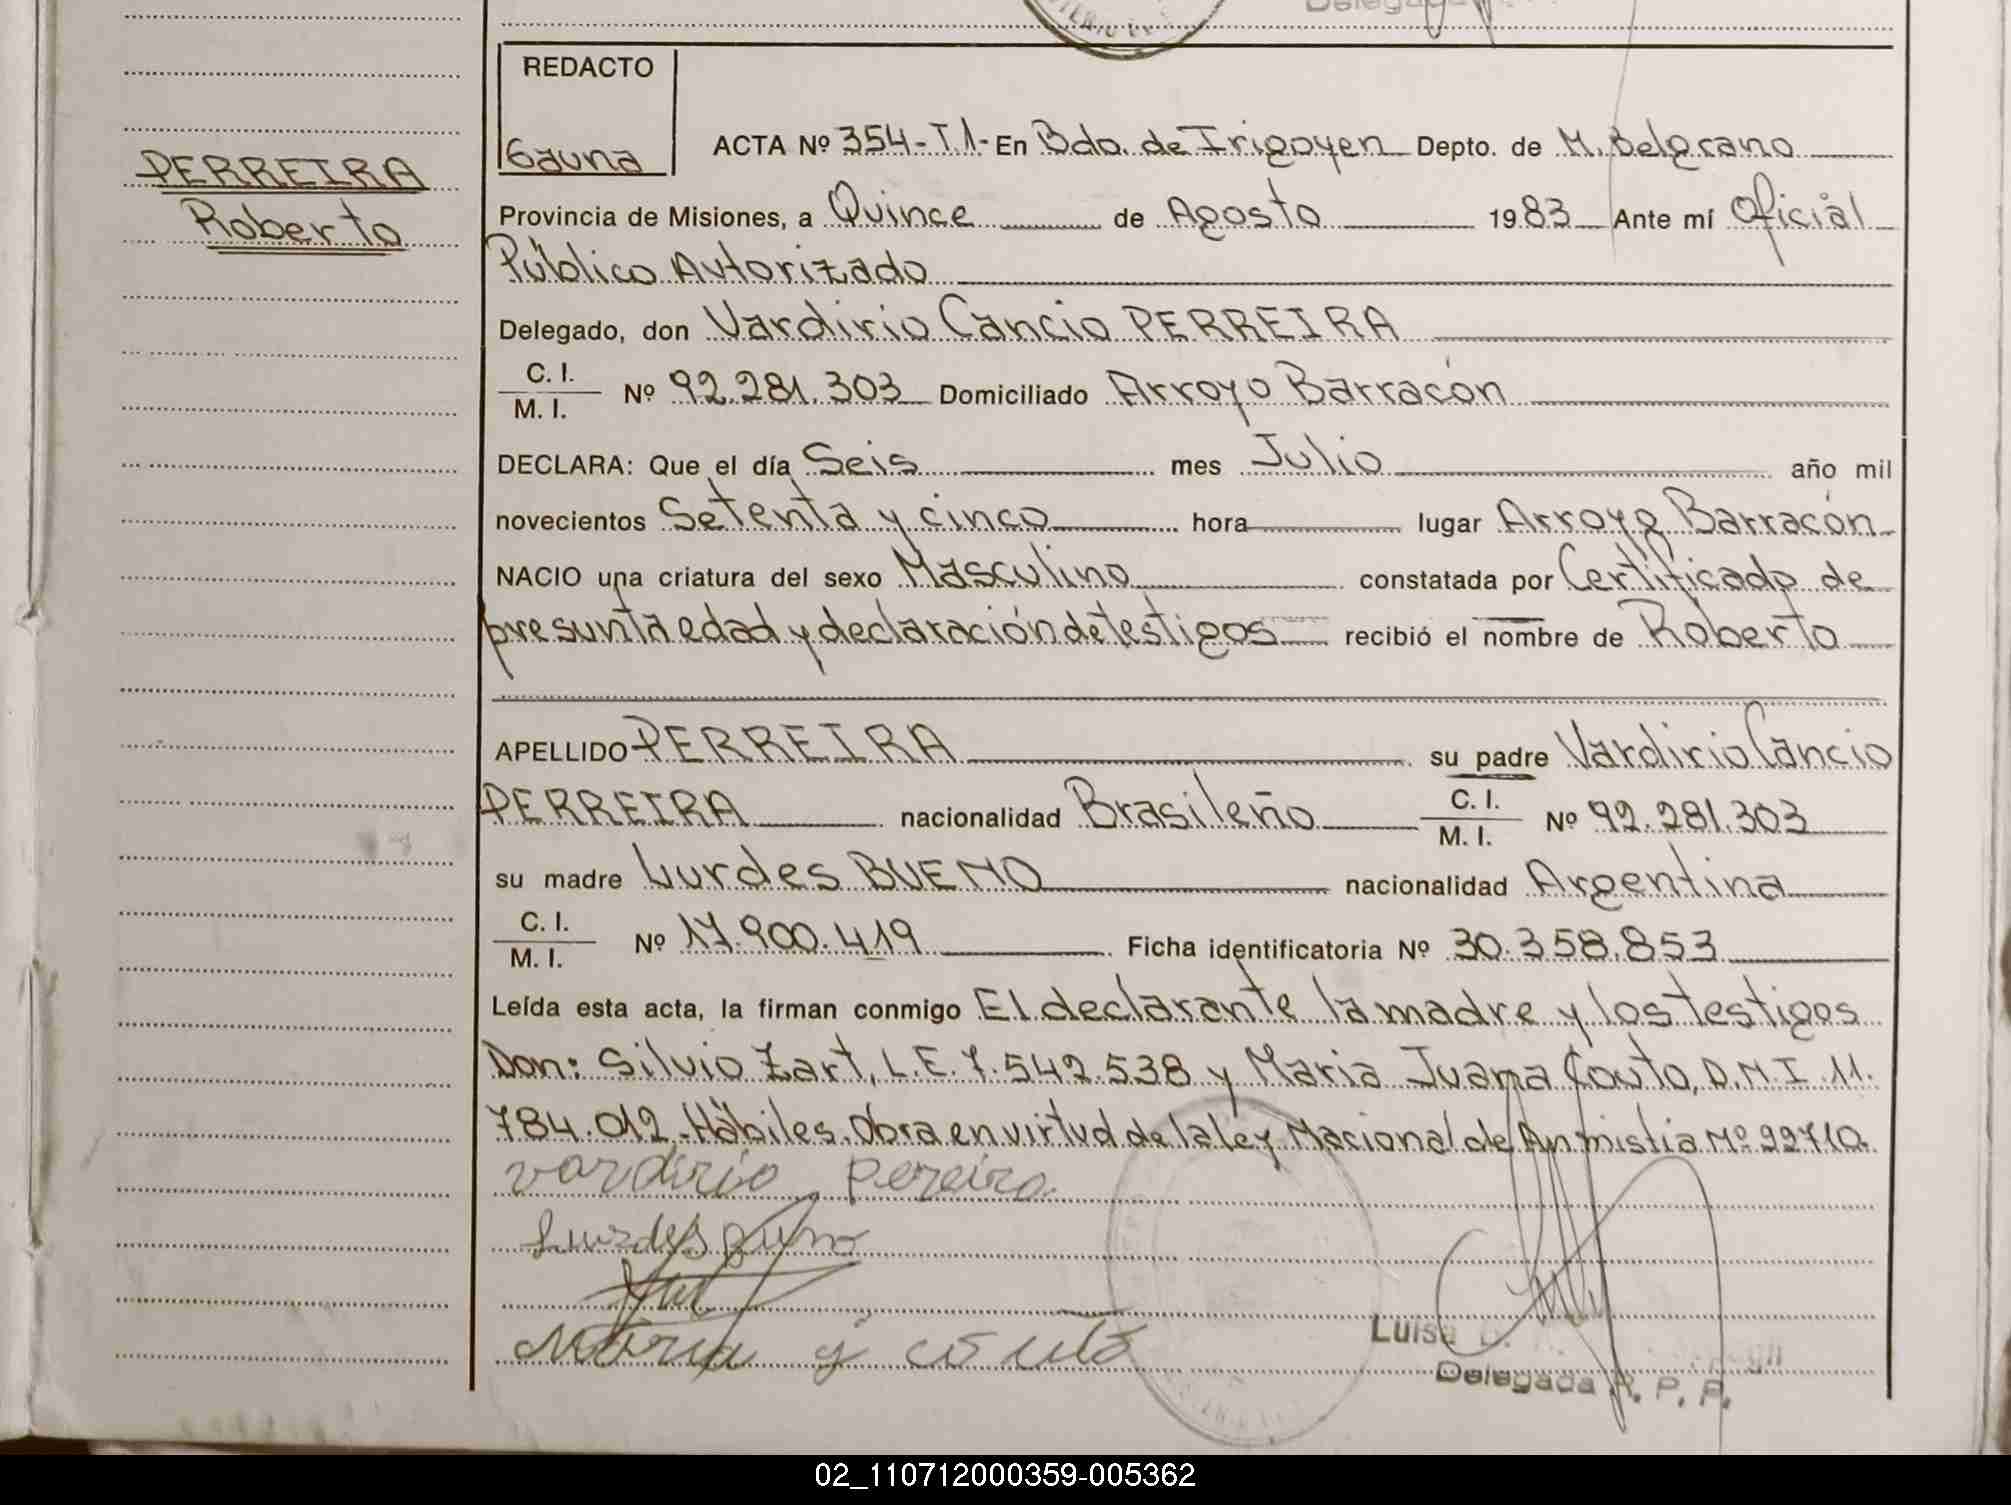 REDACTO
Gauna
PERREIRA
Roberto
ACTA Nº 354-T1- En Bdo. de Irigoyen Depto. de M. Belgrano
Provincia de Misiones, a Quince de Agosto 1983 Ante mí Oficial
Público Autorizado
Delegado, don Vardirio Cancio PERREIRA
C. I.
M. I. Nº 92.281.303 Domiciliado Arroyo Barracón
DECLARA: Que el día Seis mes Julio año mil
novecientos Setenta y cinco hora lugar Arroyo Barracón
NACIO una criatura del sexo Masculino constatada por Certificado de
presunta edad y declaración de testigos recibió el nombre de Roberto
APELLIDO PERREIRA su padre Vardirio Cancio
PERREIRA nacionalidad Brasileño C. I. M. I. Nº 92.281.303
su madre Lurdes BUENO nacionalidad Argentina
C. I.
M. I. Nº 17.900.419 Ficha identificatoria Nº 30.358.853
Leída esta acta, la firman conmigo El declarante la madre y los testigos
Don: Silvio Zart, L.E. 7.542.538 y Maria Juana Couto, D.N.I. 11.
784.012.-Hábiles. Obra en virtud de la ley Nacional de Anmistia Nº 22710.
vardirio pereira
Lurdes bueno
Maria J couto
Luisa
Delegada R. P. P.
02_110712000359-005362